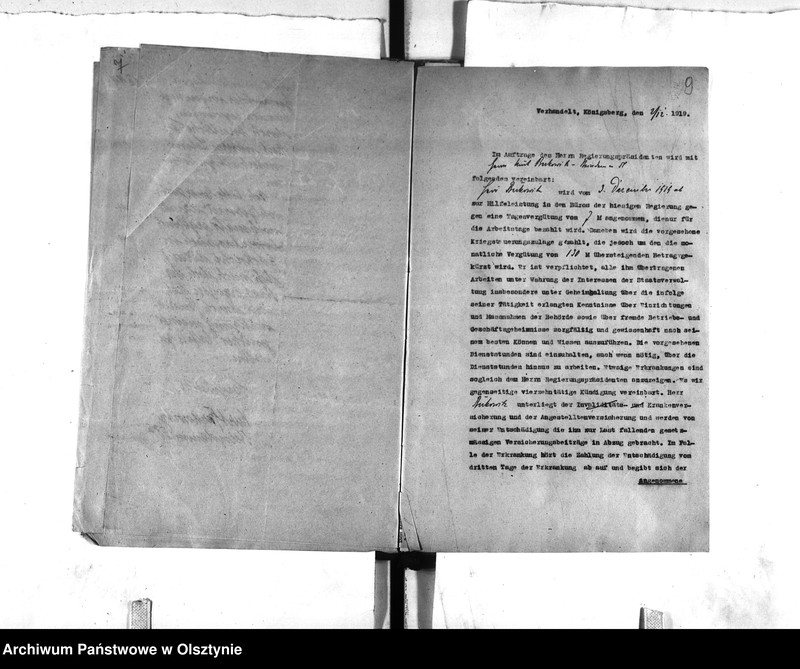 9
Verhandelt, Königsberg, den 2/12. 1919.
Im Auftrage des Herrn Regierungspräsidenten wird mit
folgendes vereinbart:
wird vom 3. Dezember 1919 ab
zur Hilfeleistung in den Büros der hiesigen Regierung ge-
gen eine Tagesvergütung von 7 M angenommen, die nur für
die Arbeitstage bezahlt wird. Daneben wird die vorgesehene
Kriegsteuerungszulage gezahlt, die jedoch um den die mo-
natliche Vergütung von 130 M übersteigenden Betrag ge-
kürzt wird. Er ist verpflichtet, alle ihm übertragenen
Arbeiten unter Wahrung der Interessen der Staatsverwal-
tung insbesondere unter Geheimhaltung über die infolge
seiner Tätigkeit erlangten Kenntnisse über Einrichtungen
und Massnahmen der Behörde sowie über fremde Betriebs- und
Geschäftsgeheimnisse sorgfältig und gewissenhaft nach sei-
nem besten Können und Wissen auszuführen. Die vorgesehenen
Dienststunden sind einzuhalten, auch wenn nötig, über die
Dienststunden hinaus zu arbeiten. Etwaige Erkrankungen sind
sogleich dem Herrn Regierungspräsidenten anzuzeigen. Es wir
gegenseitige vierzehntätige Kündigung vereinbart. Herr
unterliegt der Invaliditäts- und Krankenver-
sicherung und der Angestelltenversicherung und werden von
seiner Entschädigung die ihm zur Last fallenden gesetz-
mässigen Versicherungsbeiträge in Abzug gebracht. Im Fal-
le der Erkrankung hört die Zahlung der Entschädigung vom
dritten Tage der Erkrankung ab auf und begibt sich der
Angenommene
Archiwum Państwowe w Olsztynie